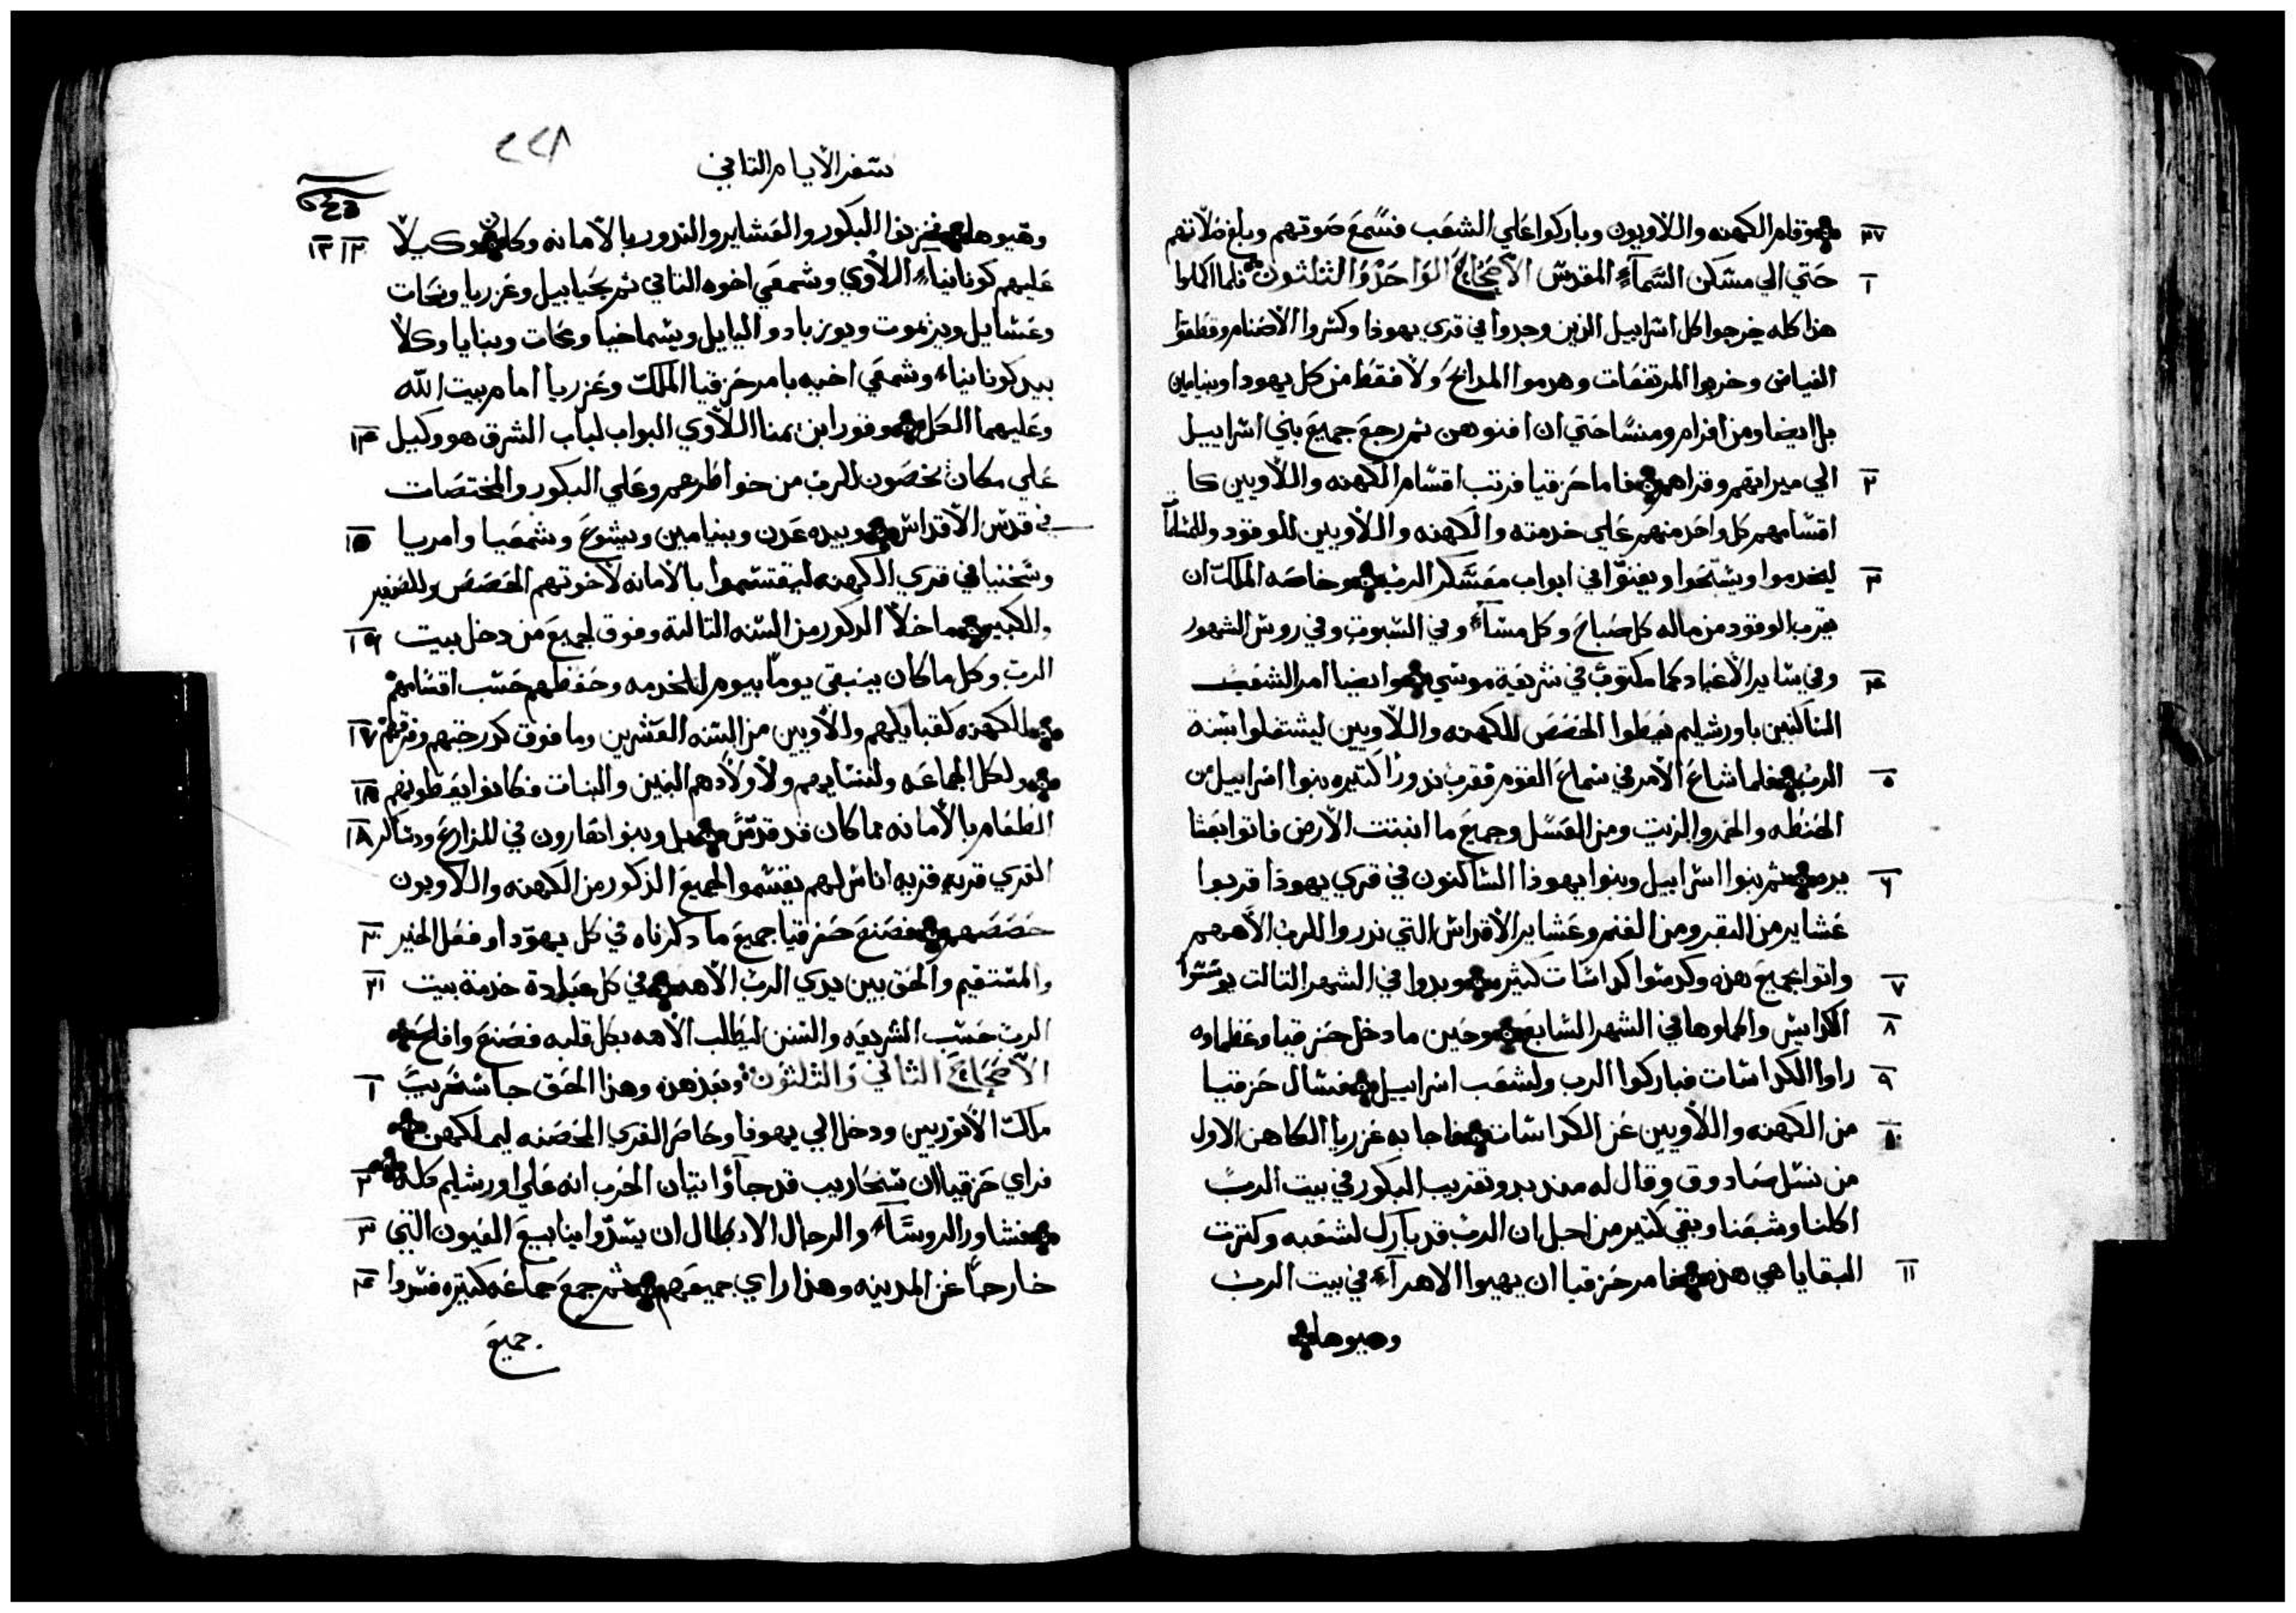 ٢٧ وقام الكهنه واللاويون وباركوا علي الشعب فسُمع صوتهم وبلغ صلاتهم
١ حتي الي مسكن السَّمآءِ المقدس الاصحَاح الوَاحَدْ وَالثلثون فلما اكملوا
هذا كله خرجوا كل اسراييل الذين وجدوا في قري يهوذا وكسروا الاصنام وقطعوا
الغياض وخربوا المرتفعات وهدموا المدابح ولا فقط من كل يهودا وبنيامين
بل ايضا ومن افرام ومنسَّا حتي ان افنوهن ثم رجع جميع بني اسراييل
٢ الي ميراثهم وقراهم فاما حزقيا فرتب اقسَام الكهنه واللاويين كا
اقسَامهم كل واحد منهم علي خدمته والكهنه واللاويين للوقود وللسلما
٣ ليخدموا ويسَبّحَوا ويغنوّا في ابواب معَسَكر الربْ وخاصَه الملك ان
يقرب الوقود من ماله كل صَباحَ وكل مسَآء وفي السبوت وفي روس الشهور
٤ وفي سَاير الاعَياد كما مكتوبٌ في شريعَة موسي وايضا امر الشعَب
الساكنين باورشليم يعَطوا الحصَصَ للكهنه واللاويين ليشتغلوا بسنة
٥ الربْ فلما شاعَ الامر في سَماعَ القوم فقرب ندورًا كثيره بنوا اسراييل من
الحنطه والخمر والزيت ومن العَسَل وجميعَ ما انبتت الارض فاتوا بعَشا
٦ ير ثم بنوا اسراييل وبنوا يهوذا السَاكنون في قري يهوذا قربوا
عَشاير من البقر ومن الغنم وعَشاير الاقداس التي ندروا للربْ الاههم
٧ واتوا بجميع هذه وكدسَوا كداسَات كثير وبدوا في الشهر التالت يوسسَوا
٨ الكراديس واكملوها في الشهر السَابع وحين ما دخل حزقيا وعَظماوه
٩ راوا الكداسَات فباركوا الرب ولشعَب اسراييل فسَال حزقيا
١٠ من الكهنه واللاويين عَن الكداسَات فاجابه عَزريا الكاهن الاول
من نسَل صَادوق وقال له منذ بدو تقريب البكور في بيت الربْ
اكلنا وشبعَنا وبقي كتير من اجل ان الربْ قد بارك لشعَبه وكترت
١١ البقايا هي هذه فامر حزقيا ان يهيوا الاهرآء في بيت الربْ
وهيوها
٢٢٨
سَفر الايام الثاني
١٢ ١٣ وهيوها فخزنوا البكور والعَشاير والندور بالامانه وكان وكيلًا
عَليهم كونانياء اللاوي وشمعَي اخوه الثاني ثم يحَياييل وعَزريا ونحَات
وعَسَايل ويرَيموت ويوزباد واليايل ويسَماخيا ومحات وبنايا وكلا
بيد كونانياء وشمعَي اخيه بامر حزقيا الملك وعَزريا امام بيت الله
١٤ وعَليهما الكل وقورا بن يمنا اللاوي البواب لباب الشرق هو وكيل
عَلي مكان يخصَون للربْ من خواطرهم وعَلي البكور والمختصَات
١٥ في قدس الاقداس وبيده عَدن وبنيامين ويشوعَ وشمعَيا وامريا
وسَخنيا في قري الكهنه ليقتسَموا بالامانه لاخوتهم الحصَصَ وللصَغير
١٦ والكبير ما خلا الذكور من السَنه الثالثة وفوق لجميعَ من دخل بيت
الربْ وكل ما كان ينبغي يومًا بيوم للخدمه وحفظهم حسَب اقسَامهم
١٧ للكهنه كقبايلهم واللاويين من السَنه العَشرين وما فوق كدرجتهم وفرقتهم
١٨ ولكل الجماعَه ولنسَايهم ولاولادهم البنين والبنات فكانوا يعَطونهم
١٨ الطعَام بالامانه مما كان قد قدّسَ بل وبنوا هَارون في المزارعَ ودسَاكر
القري قريه قريه اناس لهم يقسَموا لجميعَ الذكور من الكهنه واللاويون
٢٠ حصَصَهم فصَنعَ حَزقيا جميعَ ما ذكرناه في كل يهوّدا وفعَل الخير
٢١ والمسَتقيم والحَق بين يدي الربْ الاهه في كل عَبادة خدمة بيت
الربْ حسَب الشريعَه والسَنن ليَطلب الاهه بكل قلبه فصَنعَ وافلح
١ الاصحَاحَ الثاني وَالثلثون وبعَد هذه وهذا الحَق جا سَنحَريبَ
ملك الاثوريين ودخل الي يهوذا وحَاصَر القري الحصَنه ليملكهن
٢ فراي حَزقيا ان سَنحَاريب قد جآ واتيان الحَرب انه عَلي اورشليم كله
٣ فشاور الروسَآء والرجال الابطال ان يسَدّوا ينابيعَ العَيون التي
٤ خارجًا عَن المدينه وهذا راي جميعَهم ثم جمعَ جماعَه كثيره فسَدوا
جميعَ